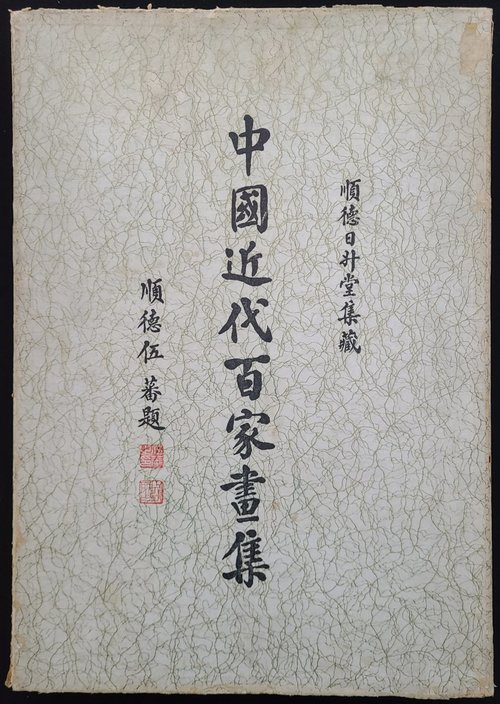 順德日升堂集藏
中國近代百家畫集
順德伍蕃題